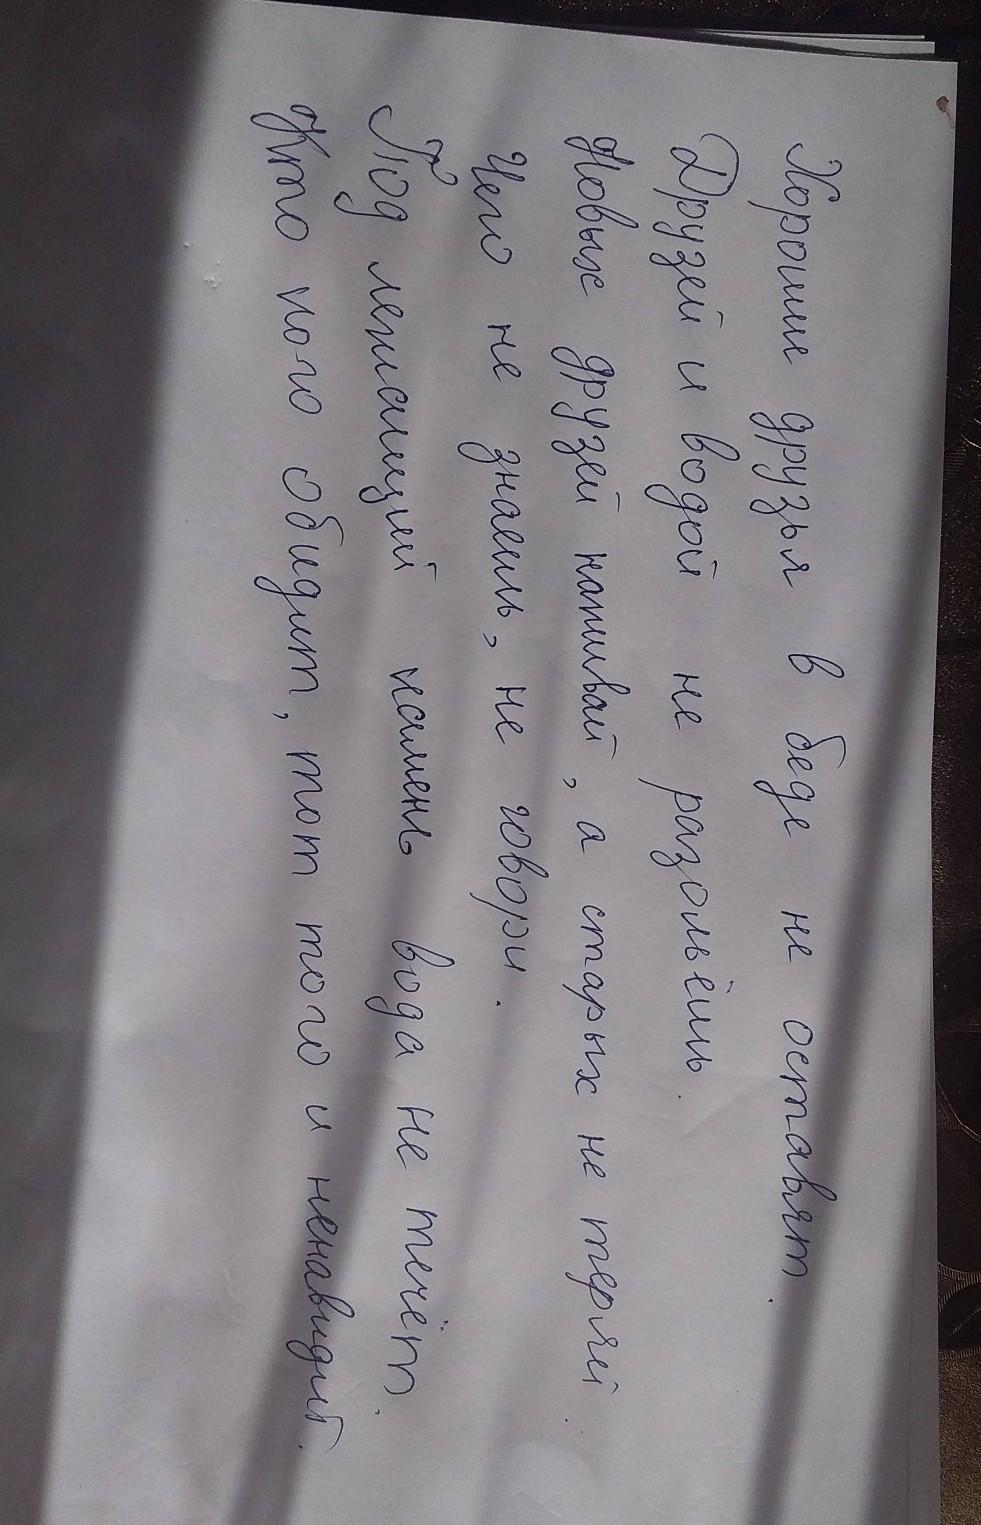 Хорошие друзья в беде не оставят.
Друзей и водой не разольёшь.
Новых друзей наживай, а старых не теряй.
Чего не знаешь, не говори.
Под лежащий камень вода не течёт.
Кто кого обидит, тот того и ненавидит.